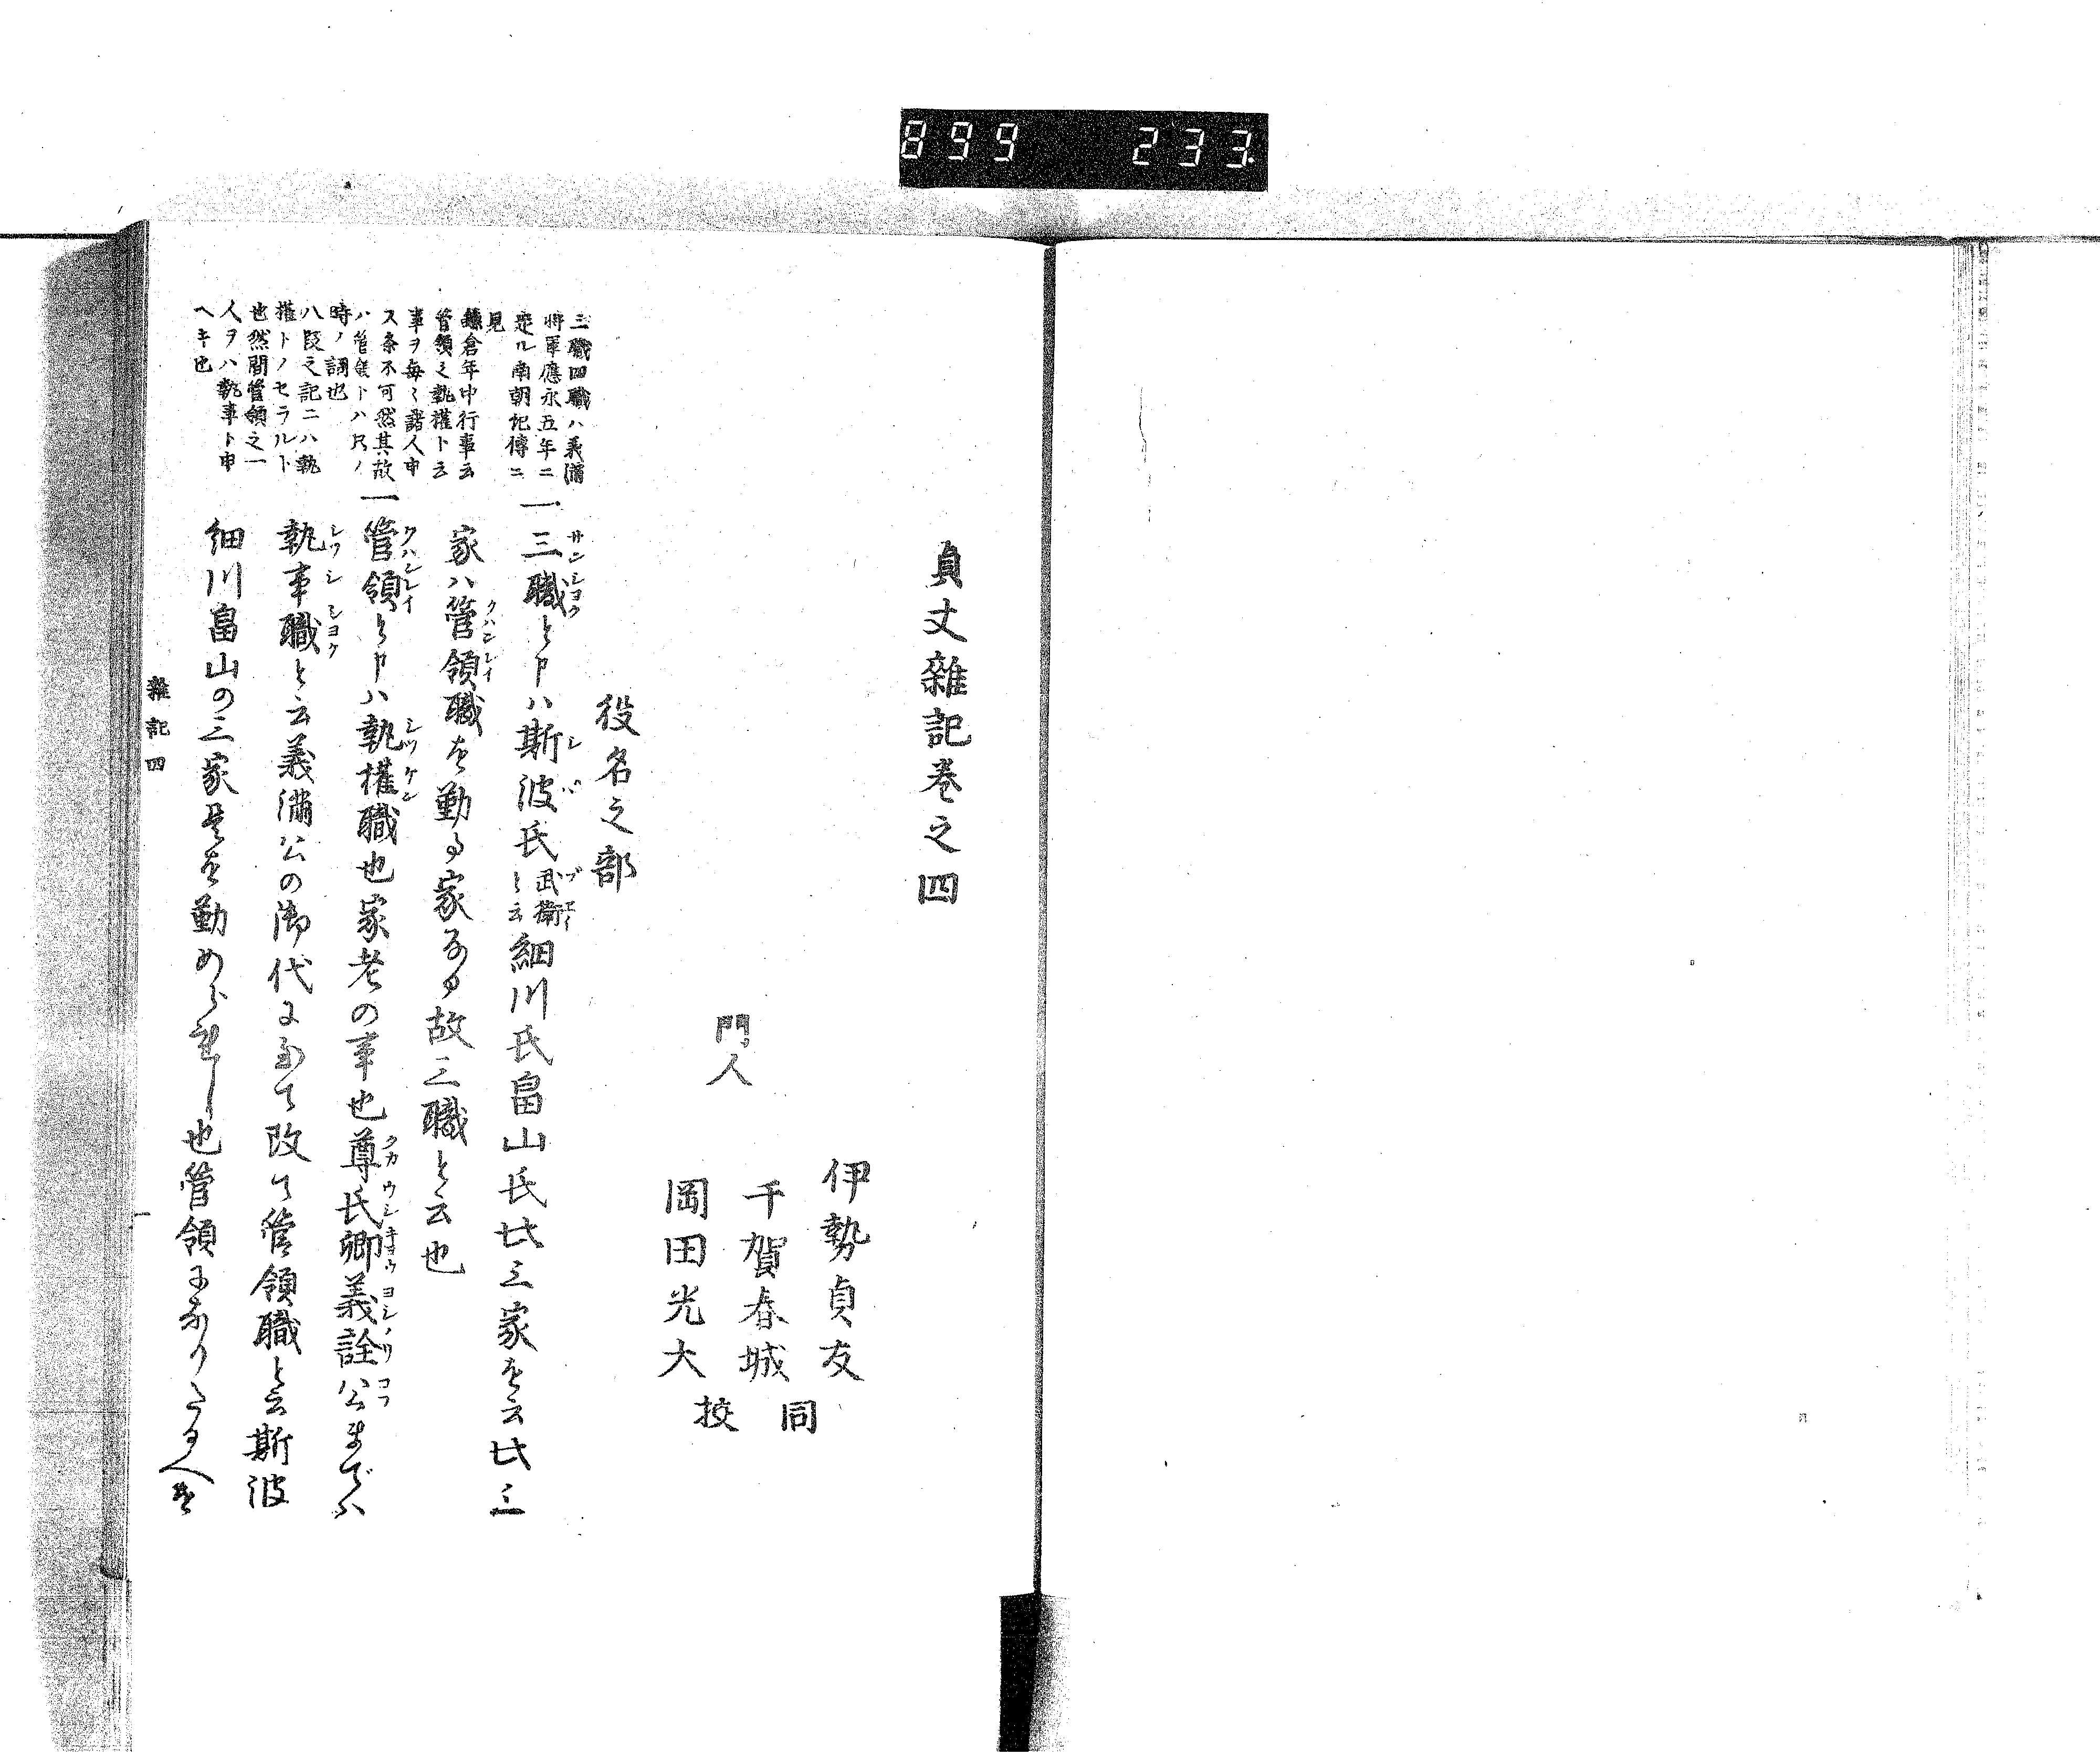 899 233
貞丈雑記巻之四
伊勢貞友
門人 千賀春城
岡田光大
同校
役名之部
三職四職ハ義満
将軍應永五年ニ
定ル南朝記傳ニ
見
鎌倉年中行事云
管領ヲ執權ト云
事ヲ毎々諸人申
ス条不可然其故
ハ管領トハ
時ノ詞也
八段之記ニハ執
權トノセラルト
也然間管領之一
人ヲハ執事ト申
ヘキ也
一三職と申ハ斯波氏武衛と云細川氏畠山氏此三家を云此三
家ハ管領職を勤る家なる故三職と云也
一管領と申ハ執権職也家老の事也尊氏卿義詮公までハ
執事職と云義満公の御代に至て改て管領職と云斯波
細川畠山の三家是を勤められし也管領になりたる人を
雜記四